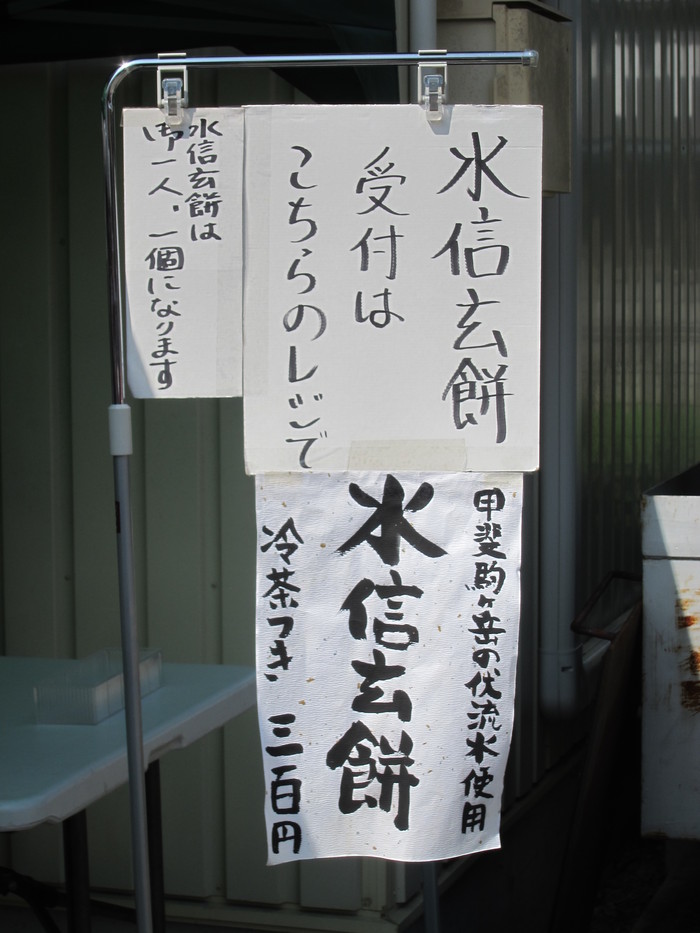 水信玄餅
受付は
こちらのレジで
水信玄餅は
御一人、一個になります
甲斐駒ヶ岳の伏流水使用
水信玄餅
冷茶つき 三百円